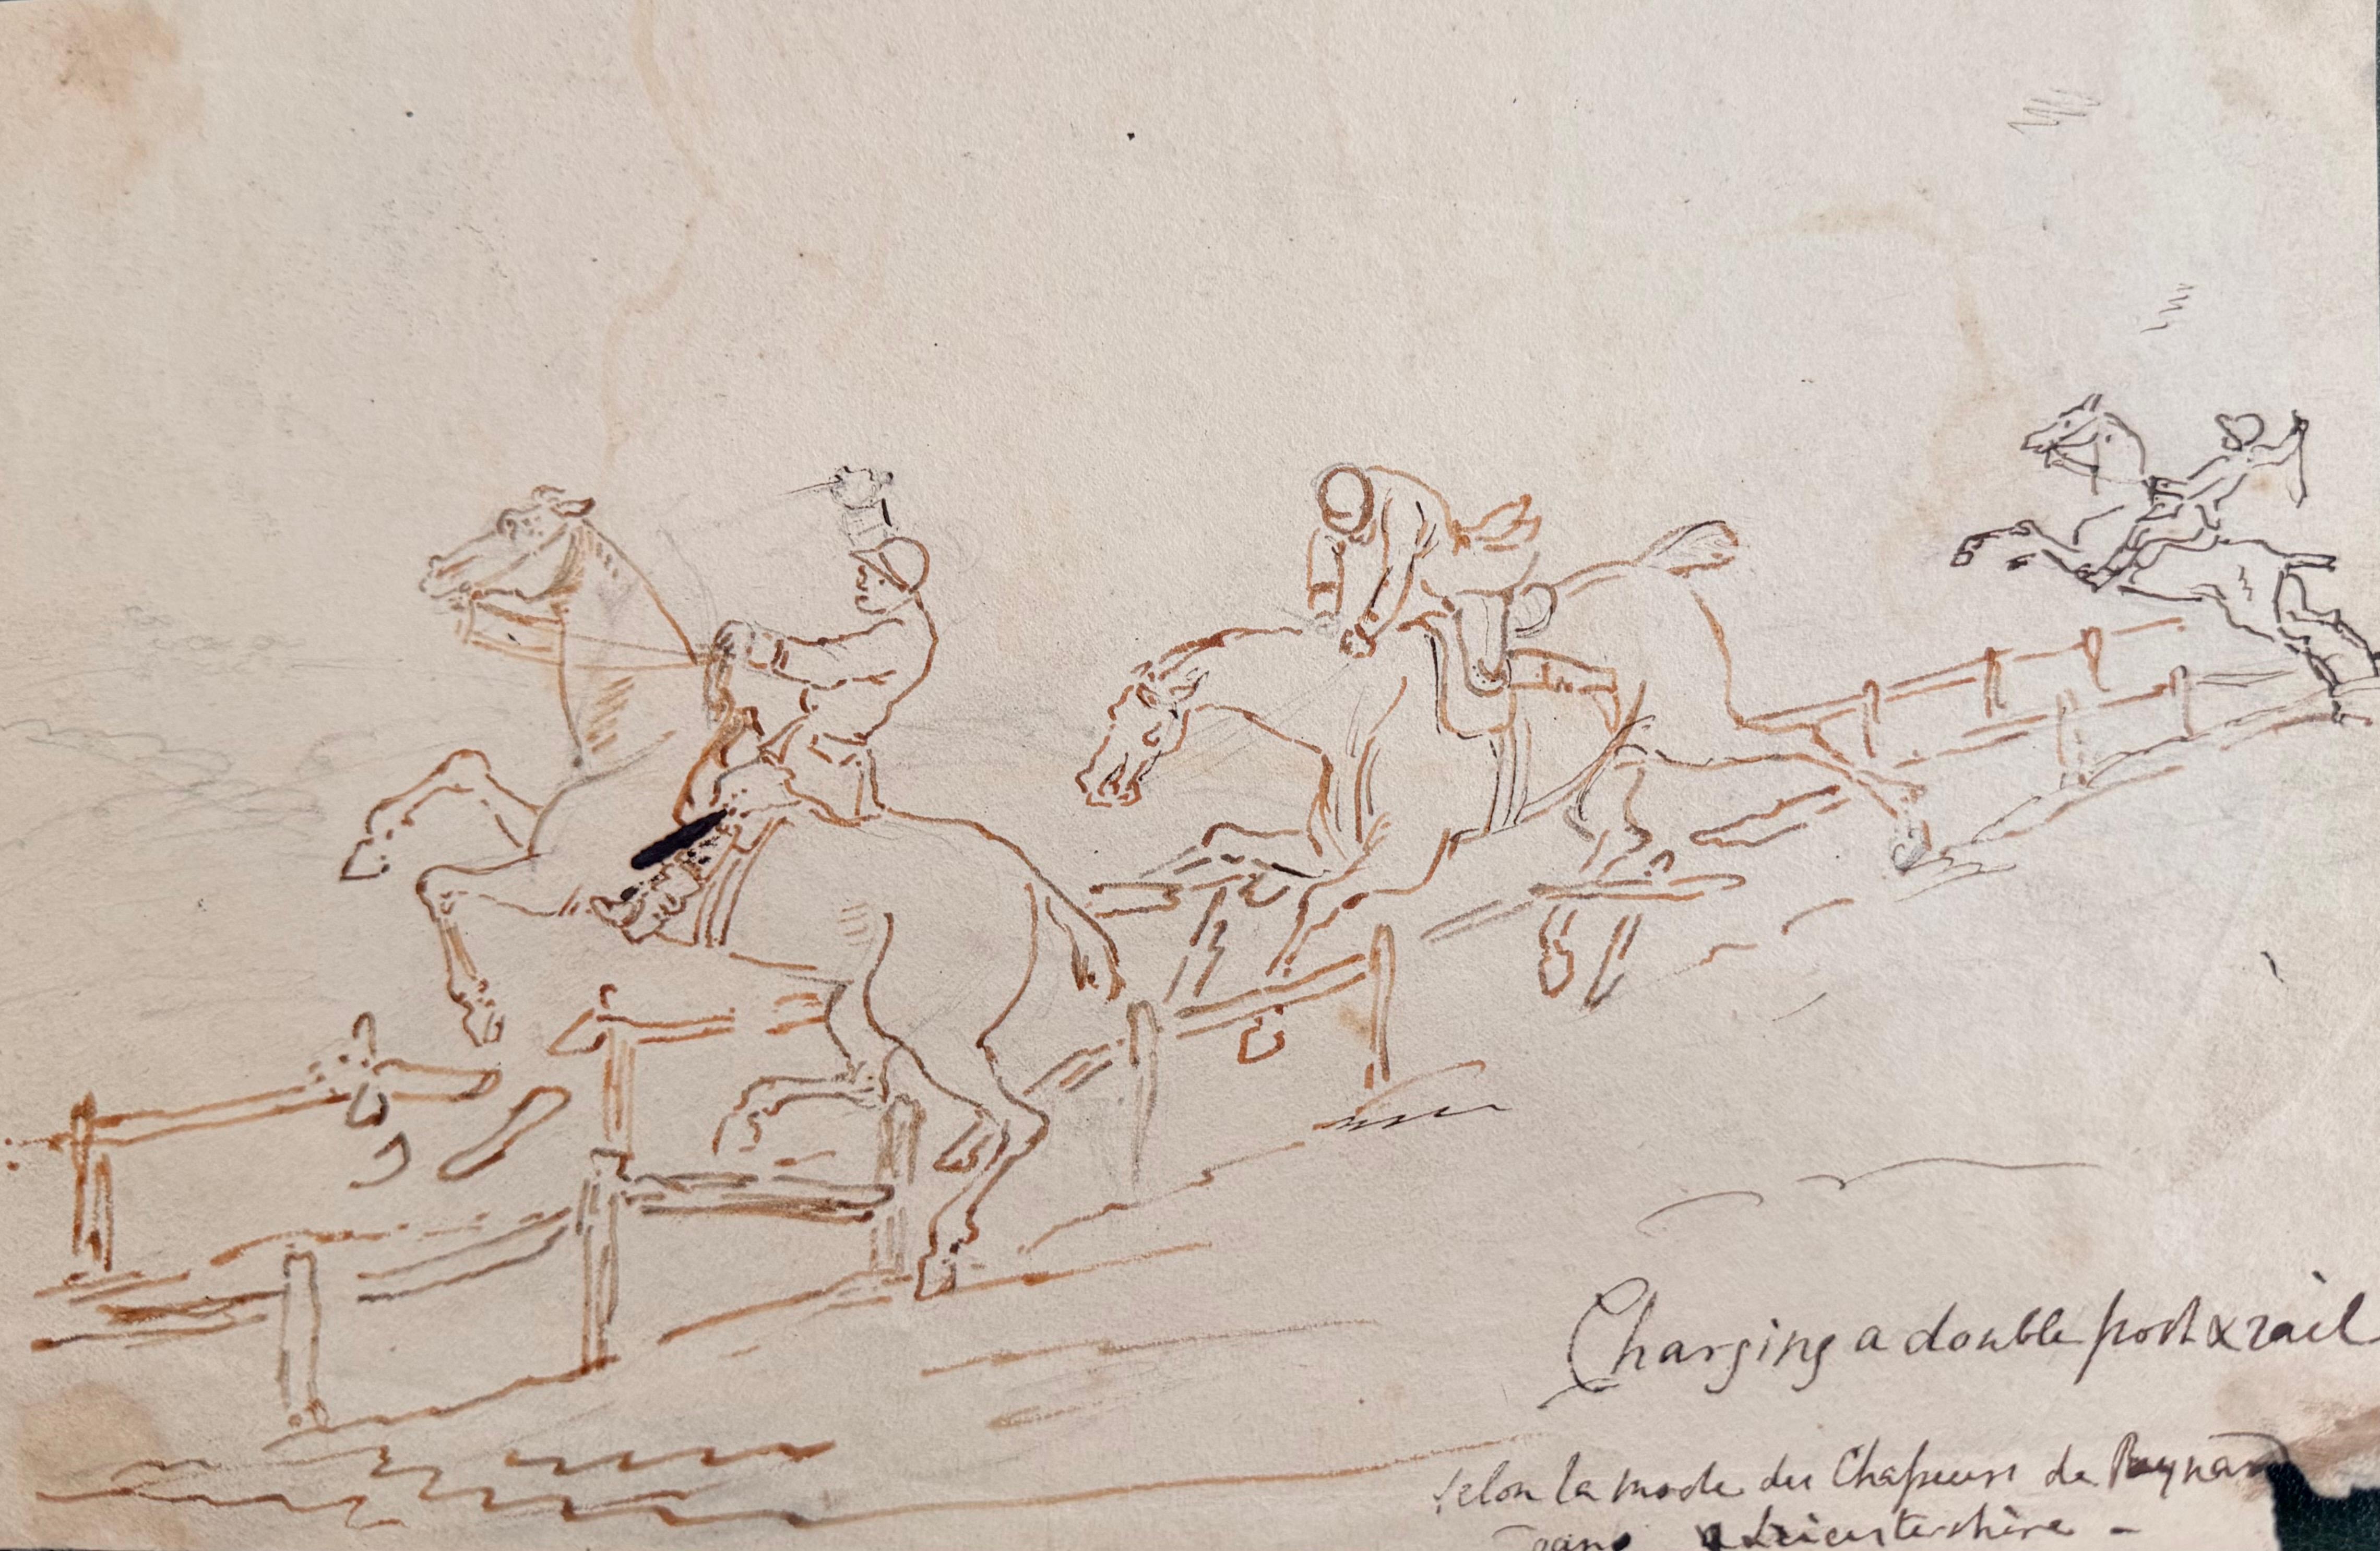 Charging a double post & rail
selon la mode des Chasseurs de Reynar
dans Leicestershire -